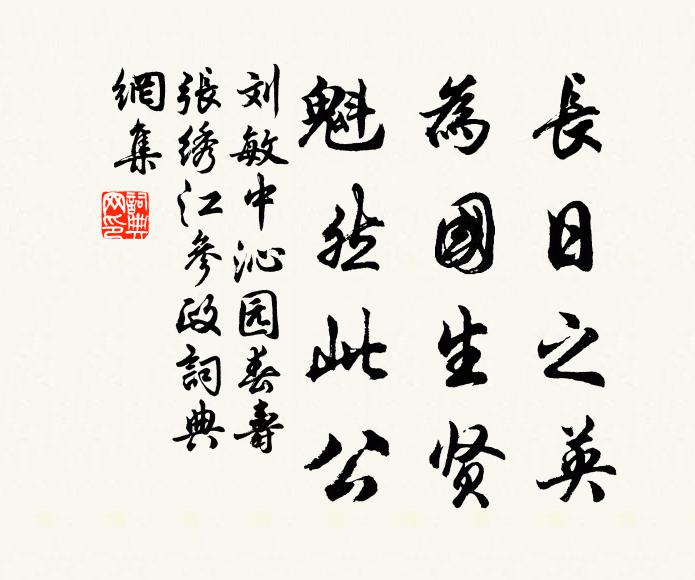 長日之英
為國生贤
魁然此公
刘敏中沁园春壽
張绣江參政詞典
網集
詞典
网印